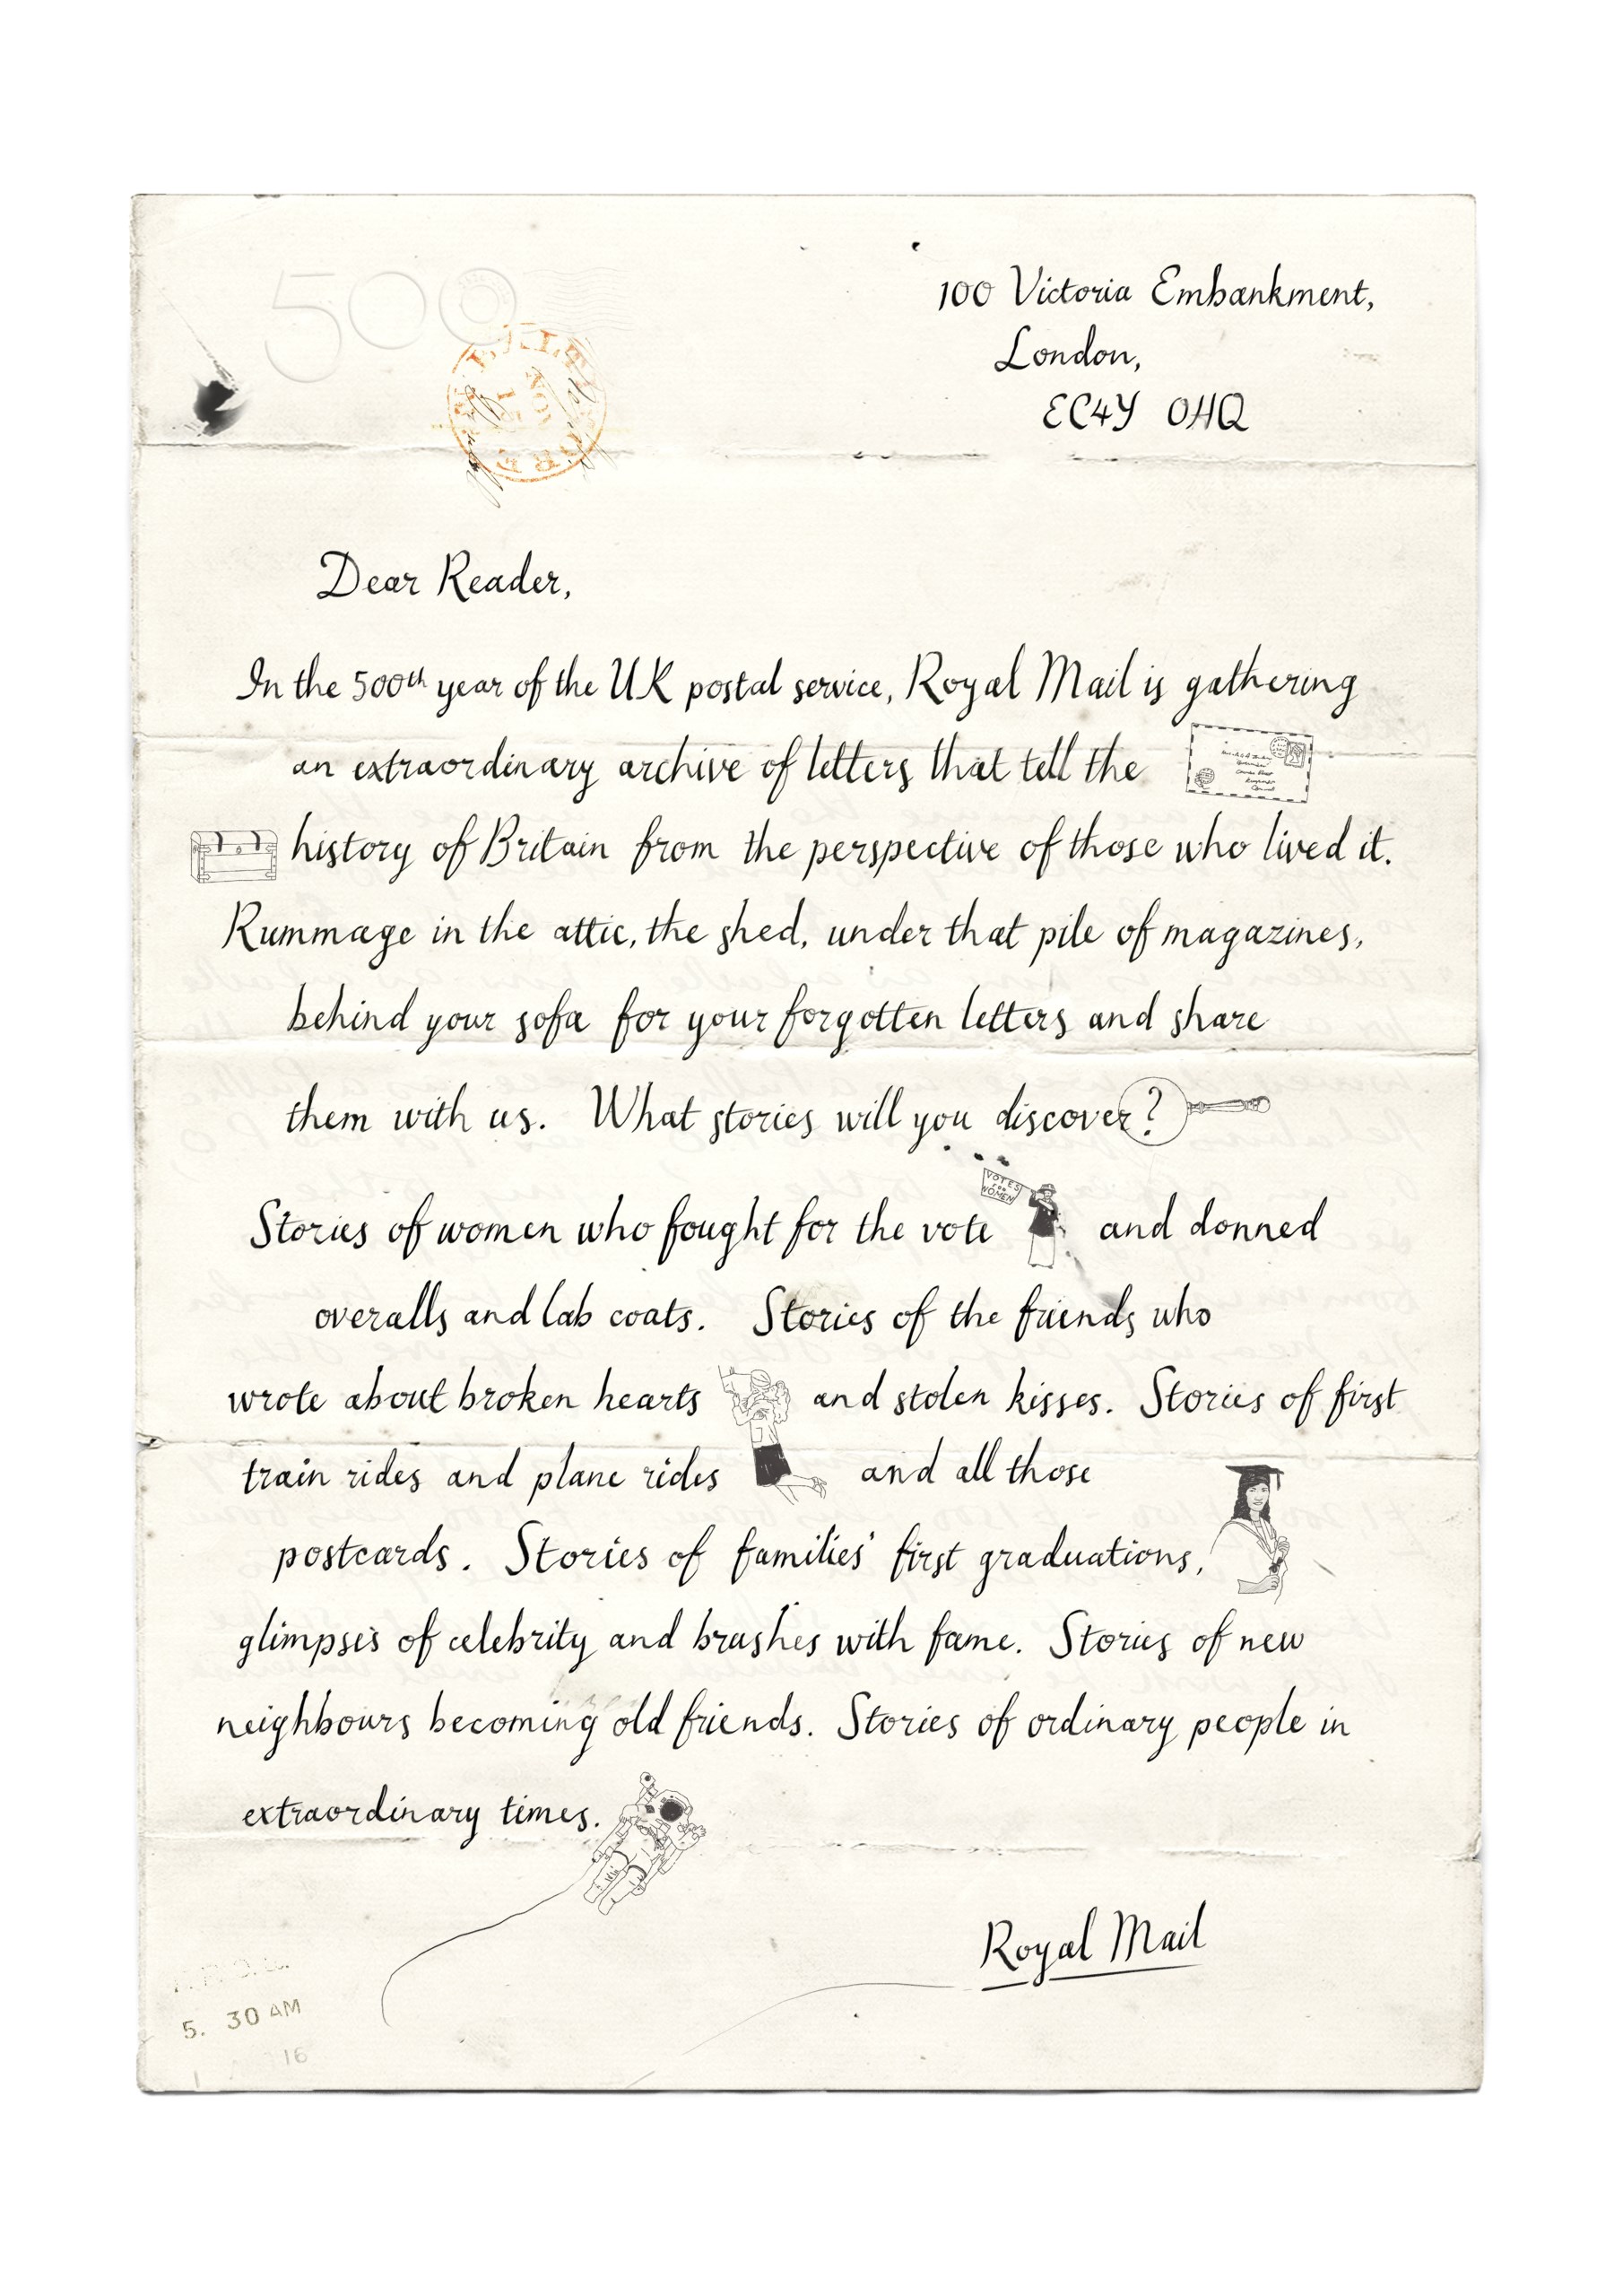 500
100 Victoria Embankment,
London,
EC4Y 0HQ
NOV
Dear Reader,
In the 500th year of the UK postal service, Royal Mail is gathering
an extraordinary archive of letters that tell the
history of Britain from the perspective of those who lived it.
Rummage in the attic, the shed, under that pile of magazines,
behind your sofa for your forgotten letters and share
them with us. What stories will you discover?
VOTES
FOR
WOMEN
Stories of women who fought for the vote and donned
overalls and lab coats. Stories of the friends who
wrote about broken hearts and stolen kisses. Stories of first
train rides and plane rides and all those
postcards. Stories of families' first graduations,
glimpses of celebrity and brushes with fame. Stories of new
neighbours becoming old friends. Stories of ordinary people in
extraordinary times.
Royal Mail
5. 30 AM
16